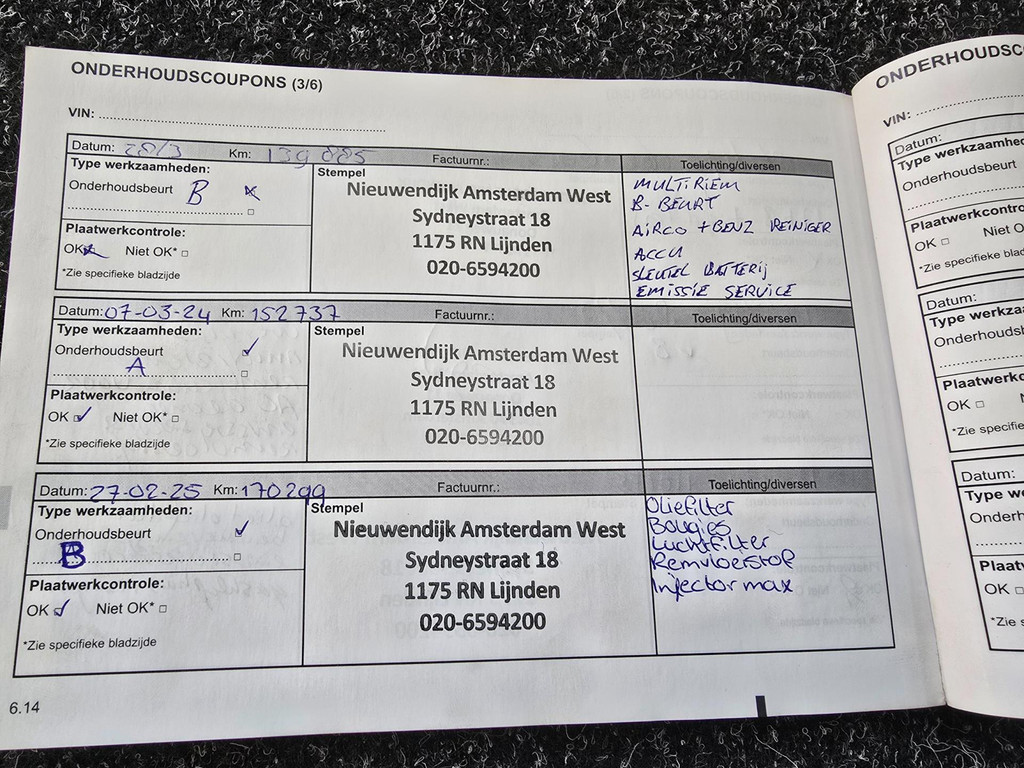 ONDERHOUDSCOUPONS (3/6)
VIN:
Datum: 28/3 Km: 139 885 Factuurnr.: Toelichting/diversen
Type werkzaamheden:
Onderhoudsbeurt B
Plaatwerkcontrole:
OK Niet OK*
*Zie specifieke bladzijde
Stempel
Nieuwendijk Amsterdam West
Sydneystraat 18
1175 RN Lijnden
020-6594200
MULTIRIEM
B-BEURT
AIRCO + BENZ REINIGER
ACCU
SLEUTEL BATTERIJ
EMISSIE SERVICE
Datum: 07-03-24 Km: 152737 Factuurnr.: Toelichting/diversen
Type werkzaamheden:
Onderhoudsbeurt ✓
A
Plaatwerkcontrole:
OK ✓ Niet OK*
*Zie specifieke bladzijde
Stempel
Nieuwendijk Amsterdam West
Sydneystraat 18
1175 RN Lijnden
020-6594200
Datum: 27-02-25 Km: 170299 Factuurnr.: Toelichting/diversen
Type werkzaamheden:
Onderhoudsbeurt ✓
B
Plaatwerkcontrole:
OK ✓ Niet OK*
*Zie specifieke bladzijde
Stempel
Nieuwendijk Amsterdam West
Sydneystraat 18
1175 RN Lijnden
020-6594200
Oliefilter
Bougies
Luchtfilter
Remvloeistof
Injector max
6.14
ONDERHOUDSC
VIN:
Datum:
Type werkzaamhe
Onderhoudsbeurt
Plaatwerkcontro
OK Niet O
*Zie specifieke bla
Datum:
Type werkza
Onderhoudsb
Plaatwerkc
OK
*Zie specifie
Datum:
Type we
Onderh
Plaatw
OK
*Zie s